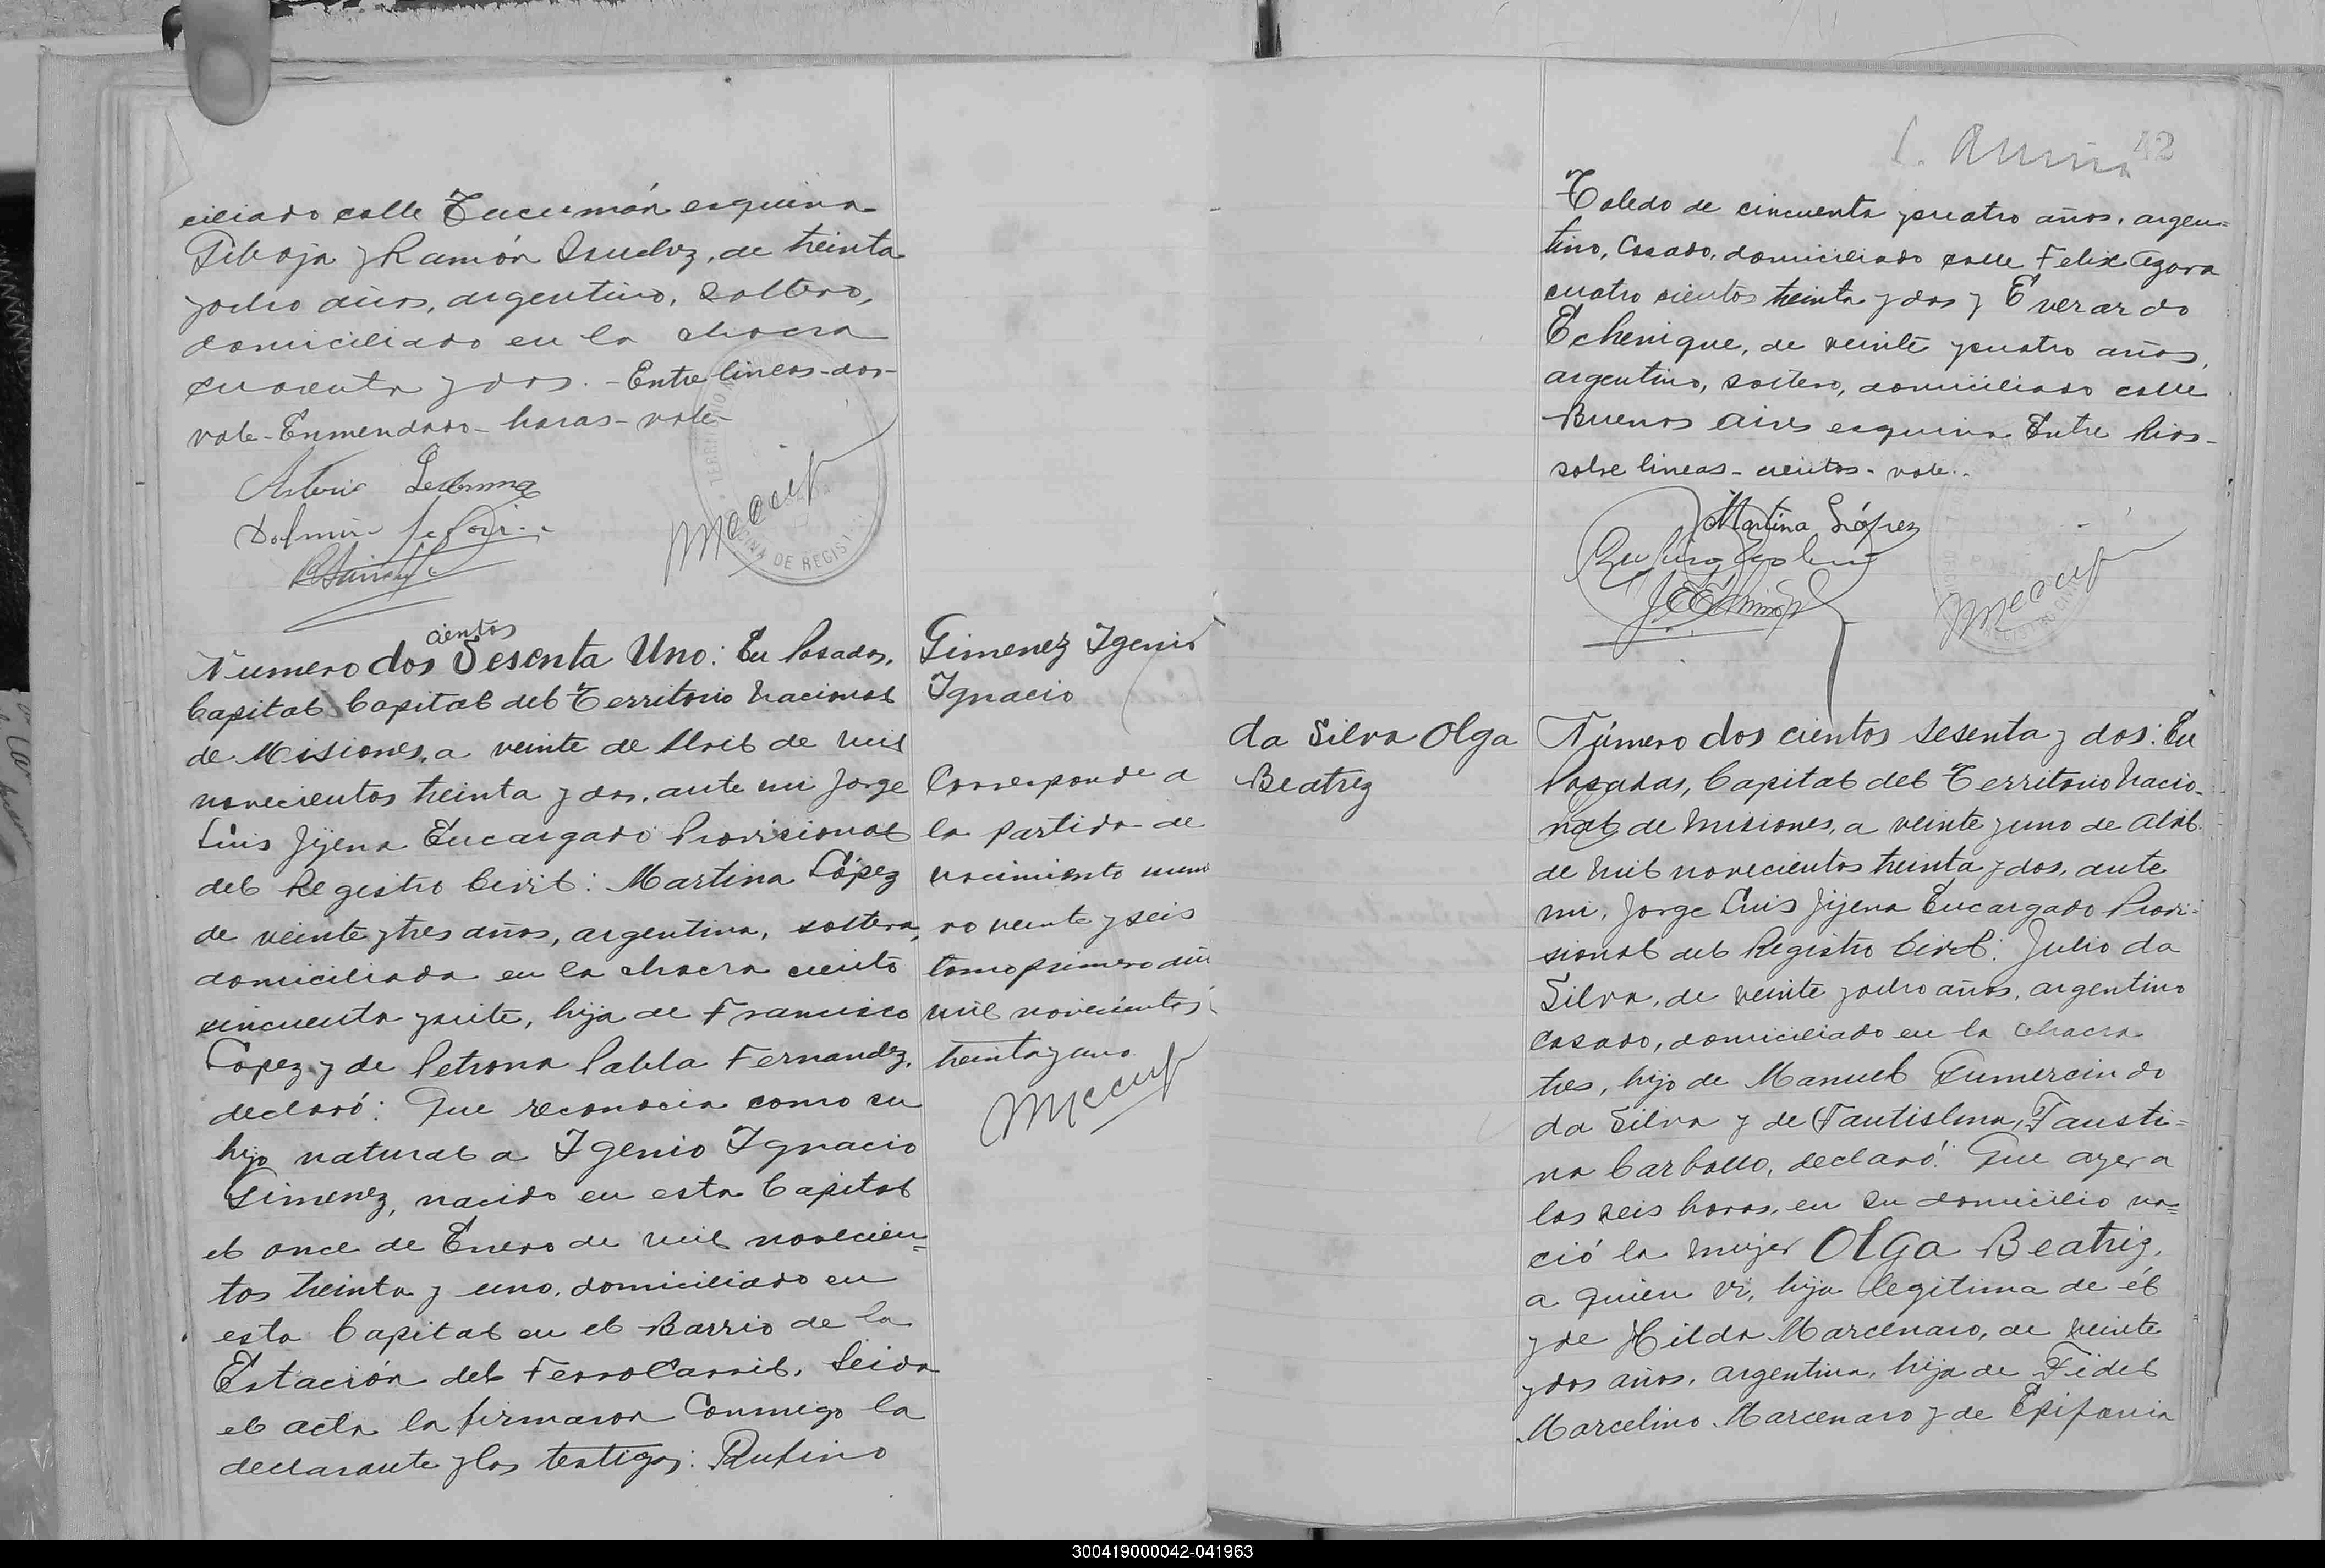 ciliado calle Tucumán esquina
y Ramón Sanchez, de treinta
y ocho años, argentino, soltero,
domiciliado en la chacra
cuarenta y dos. - Entre lineas - dos -
vale - Enmendado - horas - vale -
OFICINA DE REGISTRO
cientos
Numero dos Sesenta Uno: En Posadas,
Capital Capital del Territorio Nacional
de Misiones, a veinte de Abril de mil
novecientos treinta y dos, ante mi Jorge
Luis Jijena Encargado Provisional
del Registro Civil: Martina López
de veinte y tres años, argentina, soltera,
domiciliada en la chacra ciento
cincuenta y siete, hija de Francisco
Lopez y de Petrona Pabla Fernandez,
declaró: Que reconocia como su
hijo natural a Igenio Ignacio
Gimenez, nacido en esta Capital
el once de Enero de mil novecien=
tos treinta y uno, domiciliado en
esta Capital en el Barrio de la
Estación del FerroCarril. Leida
el acta la firmaron conmigo la
declarante y los testigos: Rufino
Gimenez Igenio
Ignacio
Corresponde a
la partida de
nacimiento nume
ro veinte y seis
tomo primero año
mil novecientos
treinta y uno.
42
Toledo de cincuenta y cuatro años, argen=
tino, casado, domiciliado calle Felix Azara
cuatro cientos treinta y dos y Everardo
Echenique, de veinte y cuatro años,
argentino, soltero, domiciliado calle
Buenos Aires esquina Entre Rios -
sobre lineas - cientos - vale.
Martina López
da Silva Olga
Beatriz
Número dos cientos sesenta y dos: En
Posadas, Capital del Territorio Nacio-
nal de Misiones, a veinte y uno de Abril
de mil novecientos treinta y dos, ante
mi, Jorge Luis Jijena Encargado Provi-
sional del Registro Civil: Julio da
Silva, de veinte y ocho años, argentino
casado, domiciliado en la chacra
tres, hijo de Manuel Gumercindo
da Silva y de Fausti=
na Carballo, declaró: Que ayer a
las seis horas, en su domicilio na=
ció la mujer Olga Beatriz,
a quien vi, hija legitima de él
y de Hilda Marcenaro, de veinte
y dos años, argentina, hija de Fidel
Marcelino Marcenaro y de Epifania
300419000042-041963